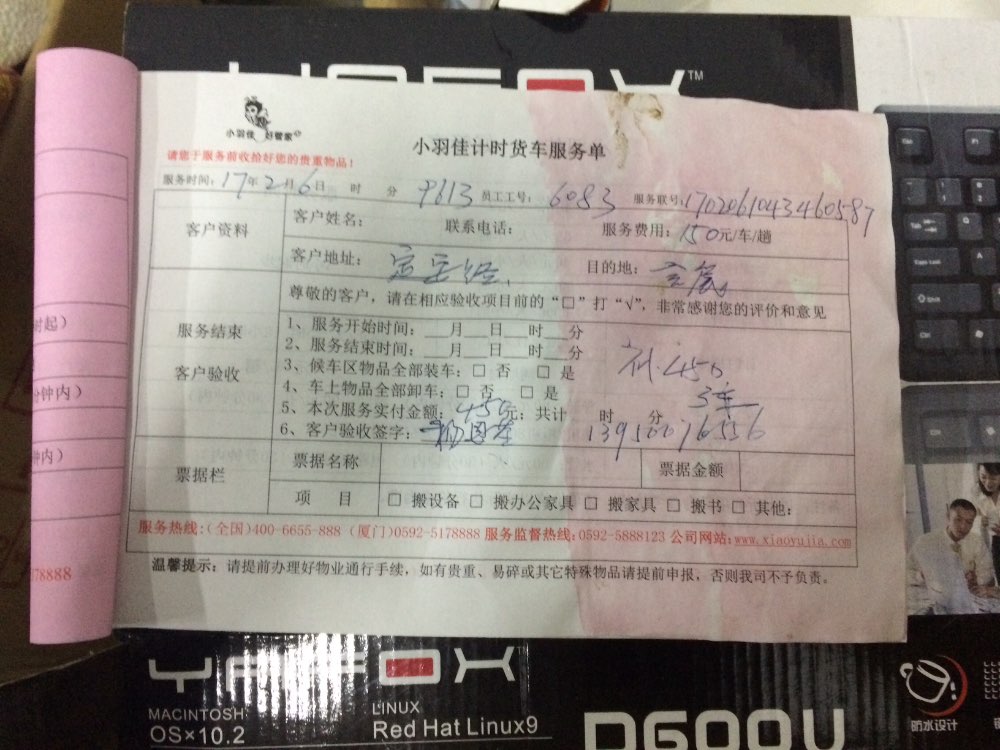 TM
小羽佳 好管家
小羽佳计时货车服务单
请您于服务前收拾好您的贵重物品!
服务时间: 17年2月6日 时 分 9613 员工工号: 6083 服务联号: 1702061043460587
客户资料
客户姓名: 联系电话: 服务费用: 150元/车/趟
客户地址: 目的地:
尊敬的客户,请在相应验收项目前的“□”打“√”,非常感谢您的评价和意见
服务结束
客户验收
1、服务开始时间: 月 日 时 分
2、服务结束时间: 月 日 时 分
3、候车区物品全部装车: □ 否 □ 是
450
4、车上物品全部卸车: □ 否 □ 是
3车
5、本次服务实付金额: 450元; 共计 时 分
6、客户验收签字: 13950076556
票据栏
票据名称 票据金额
项 目 □ 搬设备 □ 搬办公家具 □ 搬家具 □ 搬书 □ 其他:
服务热线:(全国)400-6655-888 (厦门)0592-5178888 服务监督热线:0592-5888123 公司网站:www.xiaoyujia.com
温馨提示: 请提前办理好物业通行手续,如有贵重、易碎或其它特殊物品请提前申报,否则我司不予负责。
时起)
分钟内)
钟内)
178888
MACINTOSH
OS×10.2
LINUX
Red Hat Linux9
D600U
防水设计